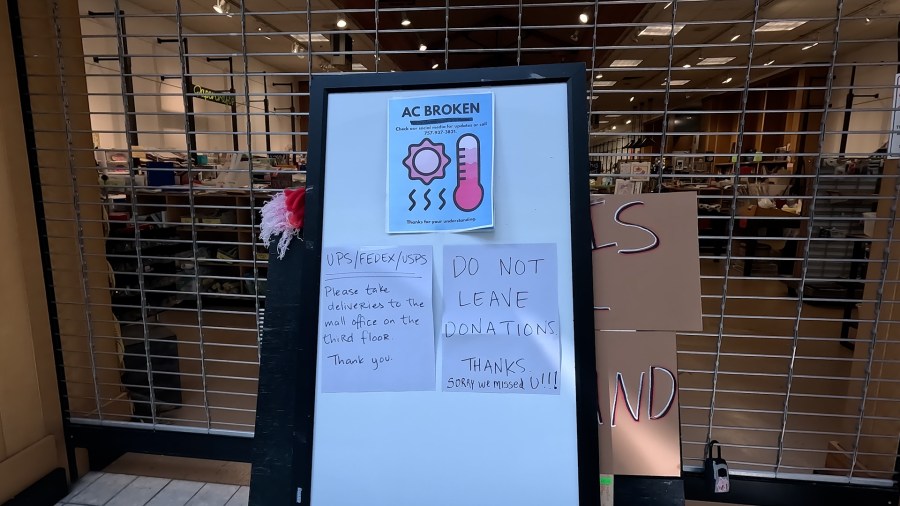 AC BROKEN
Check our social media for updates or call
757.937.2831.
Thanks for your understanding
UPS/FEDEX/USPS
Please take
deliveries to the
mall office on the
third floor.
Thank you.
DO NOT
LEAVE
DONATIONS
THANKS
SORRY we missed U!!!
LS
ND